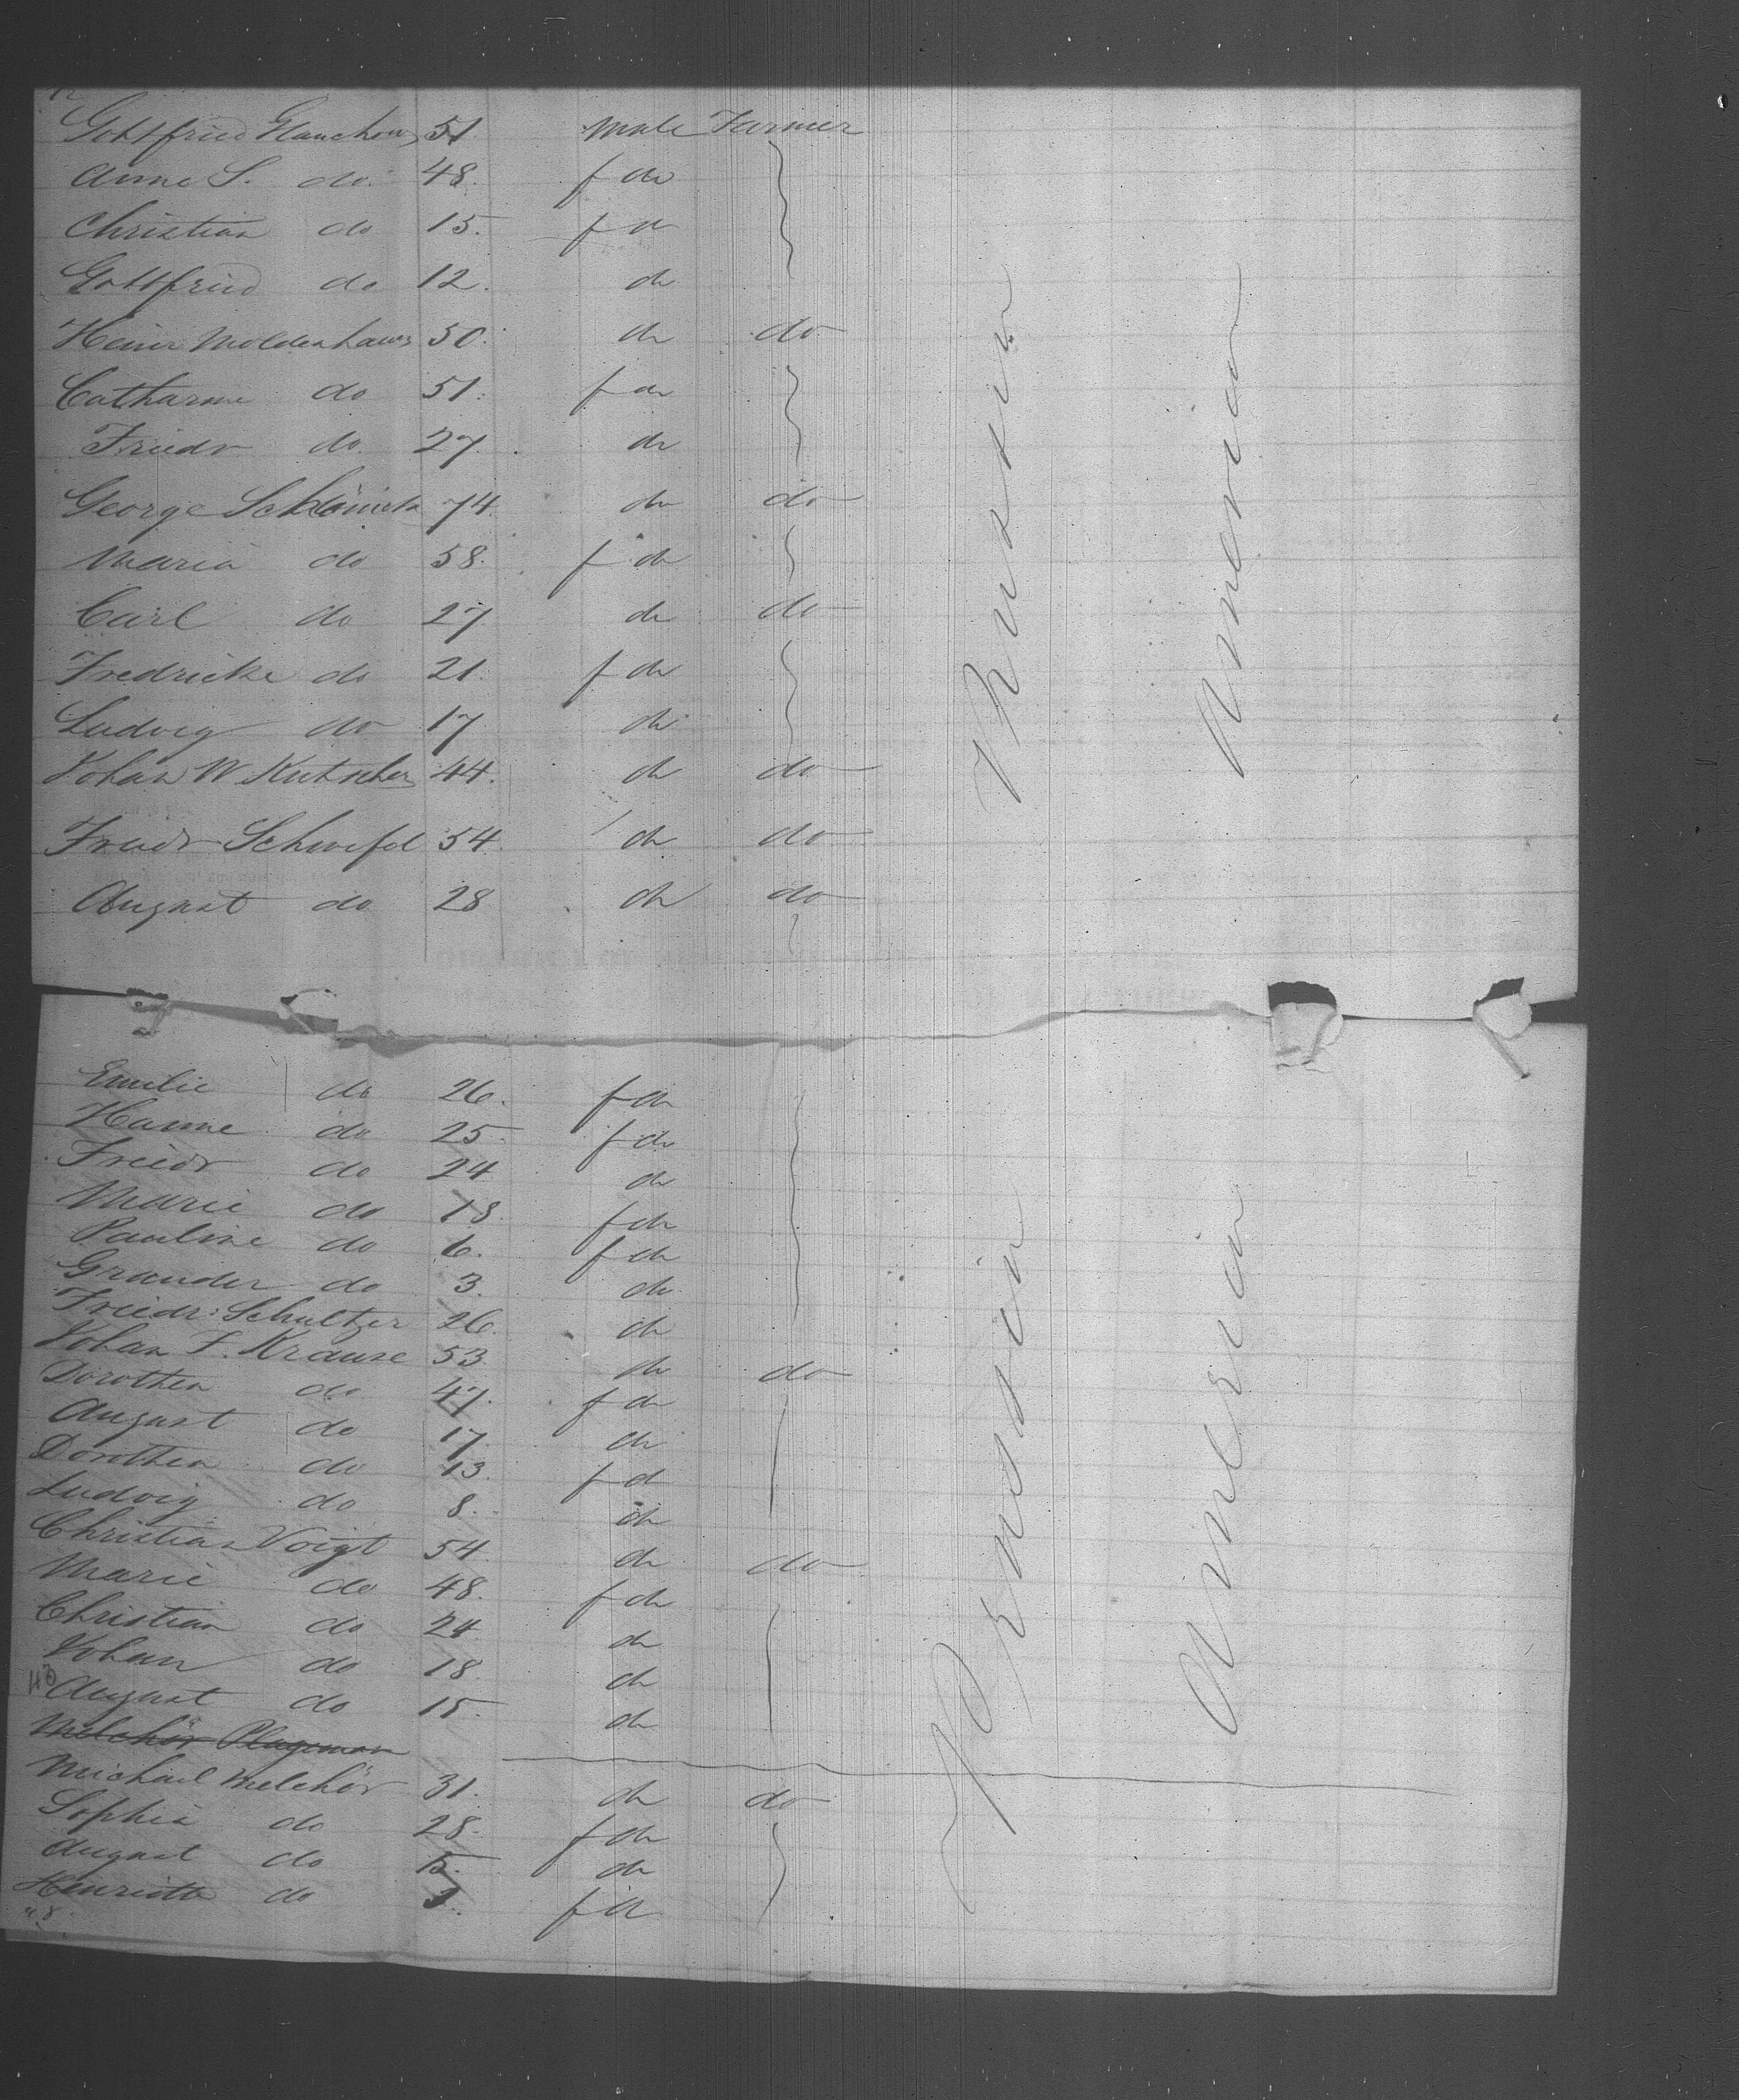 Gottfried Glauchow 51 male Farmer
Anne S. do 48. f do
Christian do 15. f do
Gottfried do 12. do
Heinr Moldenhauer 50. do do
Catharine do 51. f do
Friedr do. 27. do
George 74. do do
Maria do 58. f do
Carl do 27 do do
Fredricke do 21. f do
Ludvig do 17 do
Johan W Kutscher 44. do do
Friedr Schwefel 54. do do
August do 28 do do
Prussia
America
Emilie do 26. f do
Hanne do 25. f do
Friedr do 24 do
Marie do 18. f do
Pauline do 6. f do
do 3. do
Friedr: Schultzer 26. do
Johan F. Krause 53. do do
Dorothea do 47. f do
August do 17. do
Dorothea do 13. f do
Ludvig do 8. do
Christian Voigt 54. do do
Marie do 48. f do
Christian do 24 do
Johan do 18. do
August do 15. do
Melchör Plageman
Michael Melchör 31. do do
Sophia do 28. f do
August do 5. do
Henriette do f do
Prussia
America